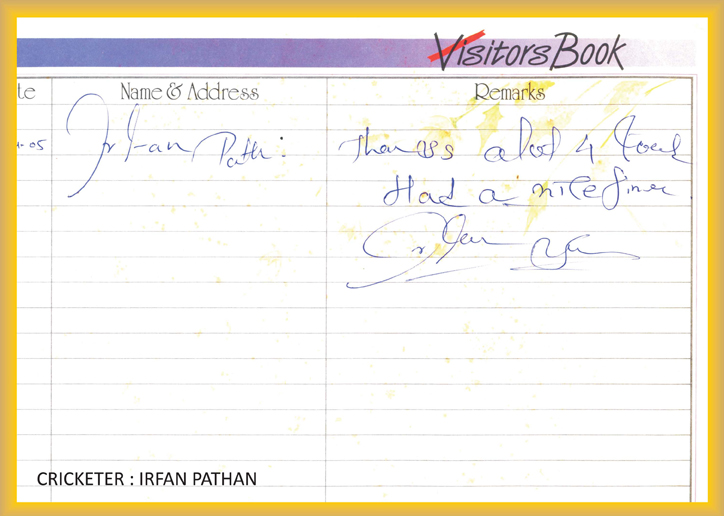 Visitors Book
te Name & Address Remarks
-05 Irfan Pathan Thanks alot 4 food
Had a nice time
CRICKETER : IRFAN PATHAN